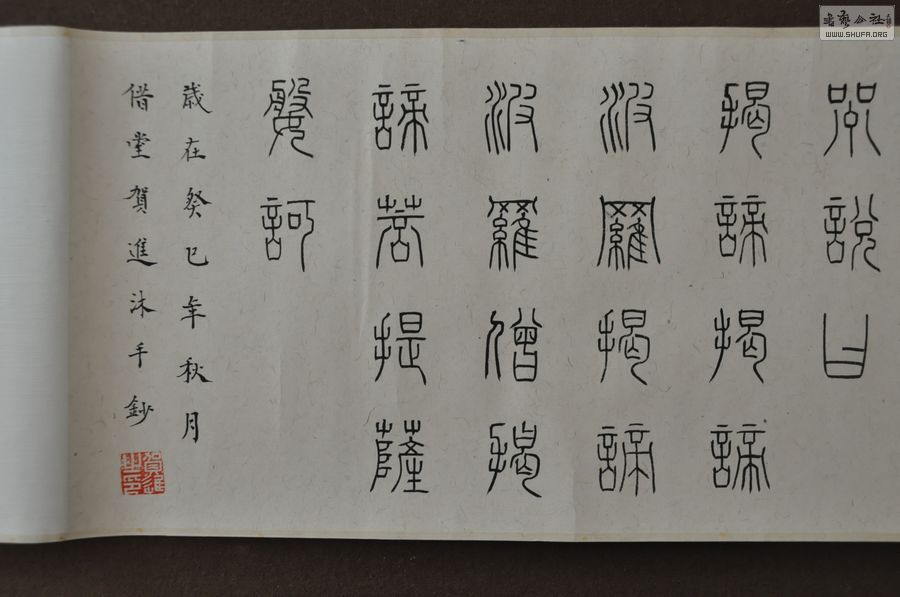 咒說曰
揭諦揭諦
波羅揭諦
波羅僧揭
諦菩提薩
婆訶
歲在癸巳年秋月
借堂賀進沐手鈔
賀進之印
書藝公社
WWW.SHUFA.ORG